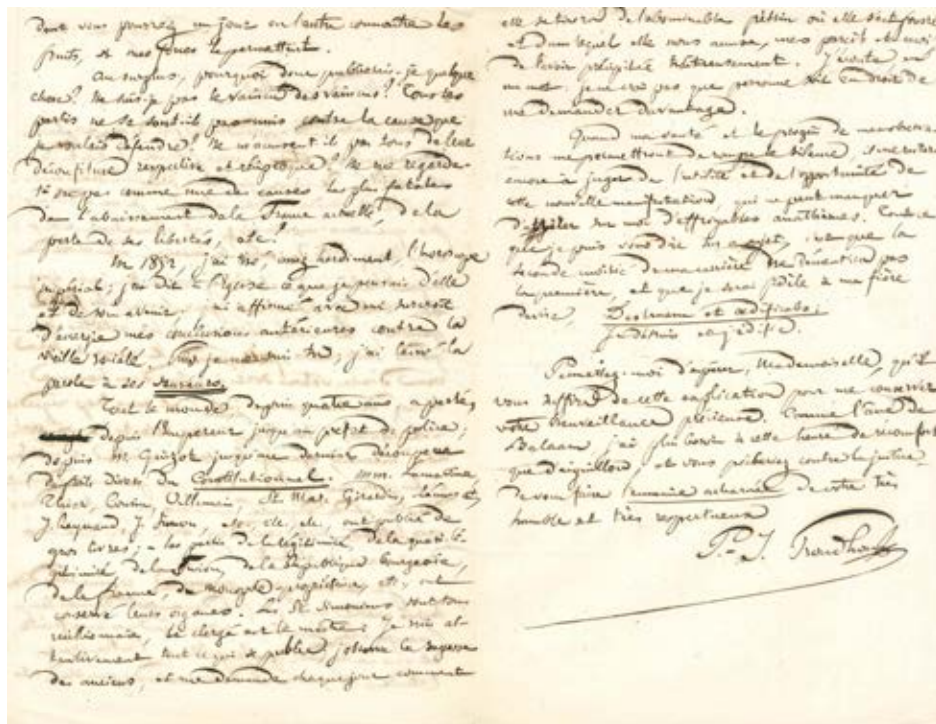 dont vous pourrez un jour ou l'autre connaître les
fruits, si mes juges le permettent.
Au surplus, pourquoi donc publierais-je quelque
chose? Ne suis-je pas le vaincu des vaincus? Tous les
partis ne se sont-ils pas réunis contre la cause que
je voulais défendre? Ne m'accusent-ils pas tous de leur
déconfiture respective et réciproque? Ne me regarde-
t-on pas comme une des causes les plus fatales
dans l'abaissement de la France actuelle, de la
perte de ses libertés, etc?
En 1852, j'ai tiré, assez hardiment, l'horoscope
impérial; j'ai dit à l'Eglise ce que je pensais d'elle
et de son avenir; j'ai affirmé avec un surcroît
d'énergie mes conclusions antérieures contre la
vieille société. Puis je me suis tu; j'ai laissé la
parole à ses
Tout le monde, depuis quatre ans a parlé,
depuis l'Empereur jusqu'au préfet de police;
depuis M. Guizot jusqu'au dernier découpeur
de faits divers du Constitutionnel. MM. Lamartine,
Thiers, Cousin, Villemain, St Marc Girardin,
J. Reynaud, J. Simon, etc. etc. etc., ont publié de
gros livres; les partis de la légitimité, de la quasi-lé-
gitimité, de la fusion, de la République bourgeoise,
de la , du monopole propriétaire, etc; ont
conservé leurs organes. Les St Simoniens sont tous
millionnaires, le clergé est le maître; Je suis at-
tentivement tout ce qui se publie, j'observe la sagesse
des anciens, et me demande chaque jour comment
elle se tirera de l'abominable pétrin où elle s'est fourrée
et dans lequel elle nous accuse, mes pareils et moi
de l'avoir précipitée traîtreusement. J'écoute en
me ; je ne crois pas que personne soit en droit de
me demander davantage.
Quand ma santé et le progrès de mes observa-
tions me permettront de rompre le silence, il me restera
encore à juger de l'utilité et de l'opportunité de
cette nouvelle manifestation, qui ne peut manquer
d'attirer sur moi d'effroyables anathèmes. Tout ce
que je puis vous dire à ce sujet, c'est que la
seconde moitié de ma carrière ne démentira pas
la première, et que je serai fidèle à ma fière
devise, Destruam et ædificabo;
je détruis et j'édifie.
Permettez-moi d'espérer, Mademoiselle, qu'il
vous suffira de cette explication pour me conserver
votre bienveillance précieuse. Comme l'âne de
Balaam, j'ai plus besoin à cette heure de réconfort
que d'aiguillon, et vous pécheriez contre la justice
de vous faire l'ennemie acharnée de votre très
humble et très respectueux
P.-J. Proudhon